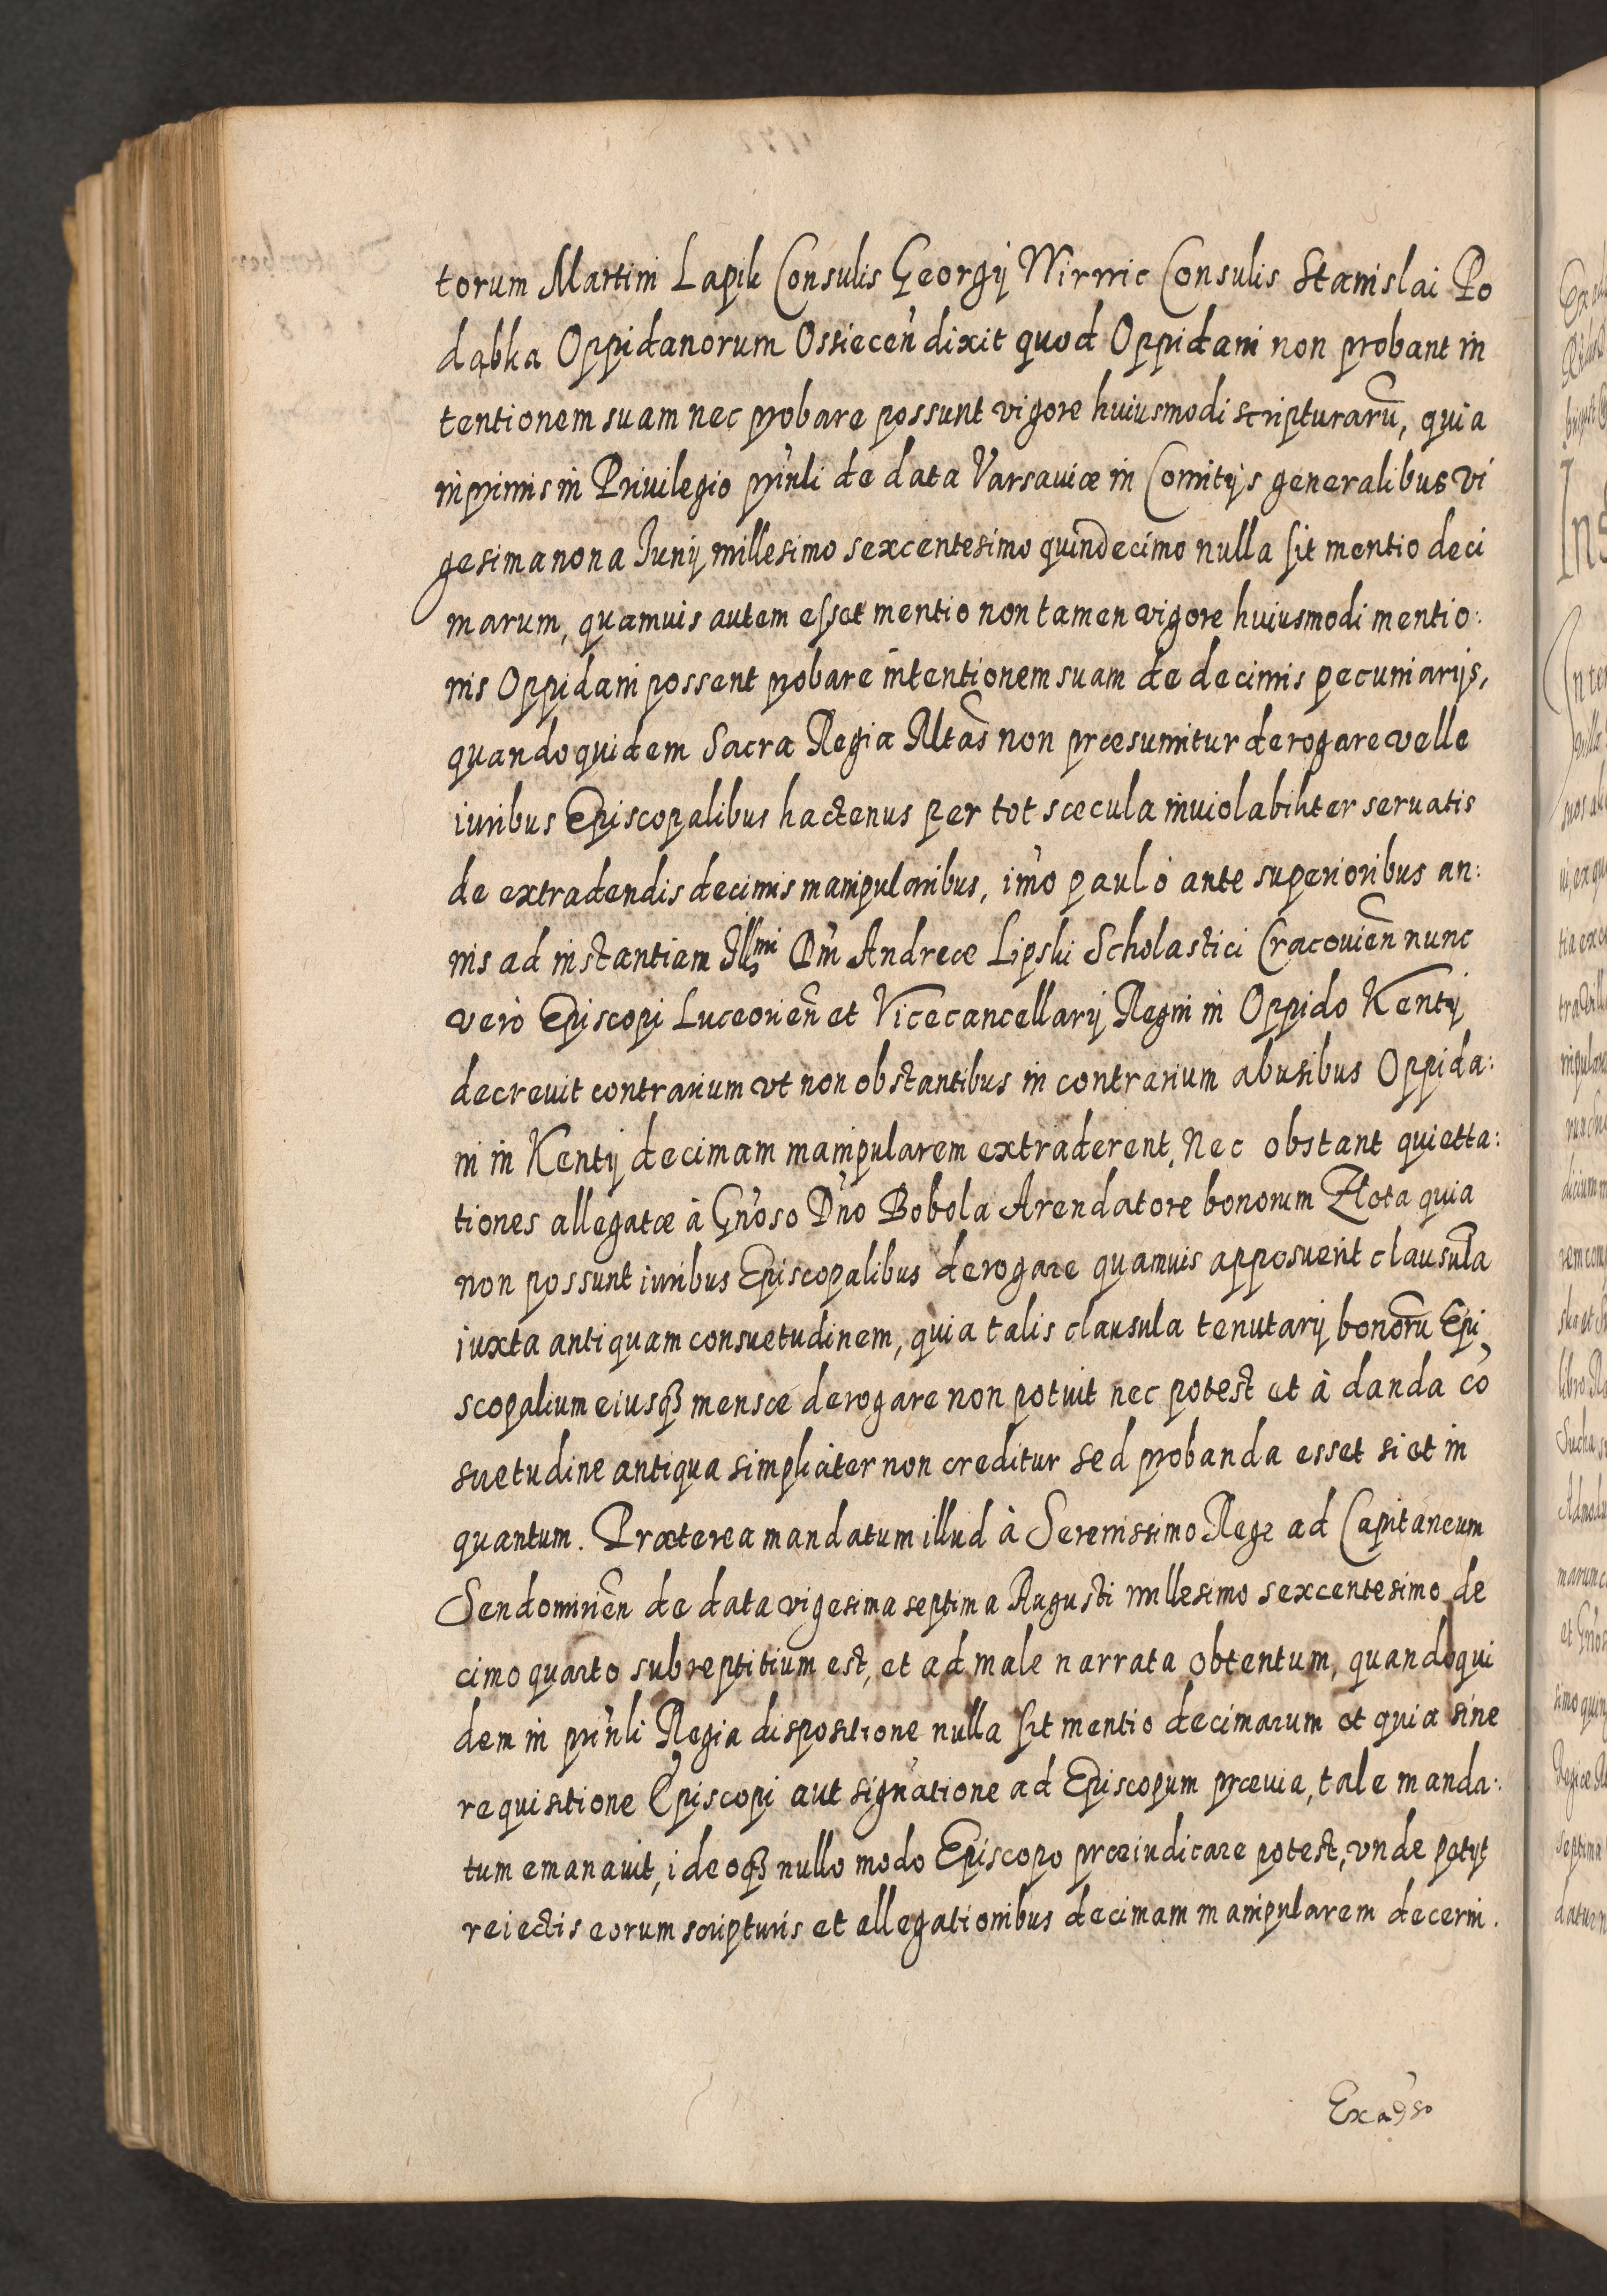 torum Martini Lapik Consulis Georgij Wirwic Consulis Stanislai Po
dąbka Oppidanorum Ossiecen̄ dixit quod Oppidani non probant in
tentionem suam nec probare possunt vigore huiusmodi scripturarū, quia
inprimis in Priuilegio prn̄li de data Varsauiæ in Comitijs generalibus vi
gesima nona Iunij millesimo sexcentesimo quindecimo nulla fit mentio deci
marum, quamuis autem esset mentio non tamen vigore huiusmodi mentio:
nis Oppidani possent probare intentionem suam de decimis pecuniarijs,
quandoquidem Sacra Regia Mtās non præsumitur derogare velle
iuribus Episcopalibus hactenus per tot sæcula inuiolabiliter seruatis
de extradendis decimis manipularibus, imò paulò ante superioribus an:
nis ad instantiam Illmi Dn̄i Andreæ Lipski Scholastici Cracouien̄ nunc
verò Episcopi Luceorien̄ et Vicecancellarij Regni in Oppido Kenty
decreuit contrarium vt non obstantibus in contrarium abusibus Oppida:
ni in Kenty decimam manipularem extraderent, Nec obstant quietta:
tiones allegatæ à Gn̄oso Dn̄o Bobola Arendatore bonorum Złota quia
non possunt iuribus Episcopalibus derogare quamuis apposuerit clausula
iuxta antiquam consuetudinem, quia talis clausula tenutarij bonorū Epi,
scopalium eiusqȝ mensæ derogare non potuit nec potest et à danda cō
suetudine antiqua simpliciter non creditur sed probanda esset si et in
quantum. Præterea mandatum illud à Serenissimo Rege ad Capitaneum
Sendomirien̄ de data vigesima septima Augusti millesimo sexcentesimo de
cimo quarto subreptitium est, et ad male narrata obtentum, quandoqui
dem in prn̄li Regia dispositione nulla fit mentio decimarum et quia sine
requisitione Episcopi aut signatione ad Episcopum præuia, tale manda:
tum emanauit, ideoqȝ nullo modo Episcopo præiudicare potest, vnde petijt
reiectis eorum scripturis et allegationibus decimam manipularem decerni.